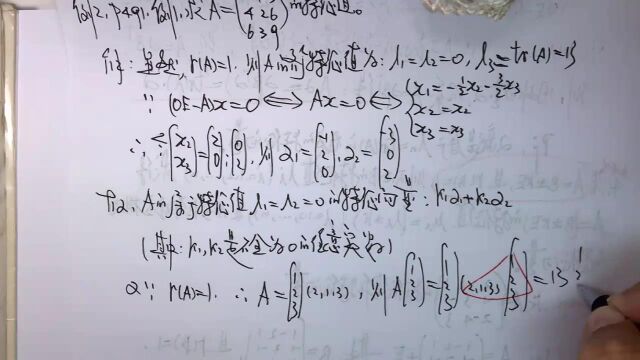 P49 1. 例1, 求 A = ( 4 2 6 / 6 3 9 ) 的特征值。
解: 显然, r(A)=1. 则A的特征值为: λ1=λ2=0, λ3=tr(A)=13
∵ (0E-A)x=0 ⟺ Ax=0 ⟺ { x1=-1/2x2-3/2x3 / x2=x2 / x3=x3
∴ 令 (x2 / x3) = (2 / 0), (0 / 2), 则 α1 = (-1 / 2 / 0), α2 = (-3 / 0 / 2)
A的属于特征值 λ1=λ2=0 的特征向量: k1α1+k2α2
(其中: k1, k2 是不全为0的任意实数)
又∵ r(A)=1. ∴ A = (1 / 2 / 3) (2,1,3), 则 A (1 / 2 / 3) = (1 / 2 / 3) (2,1,3) (1 / 2 / 3) = 13 1 / 2